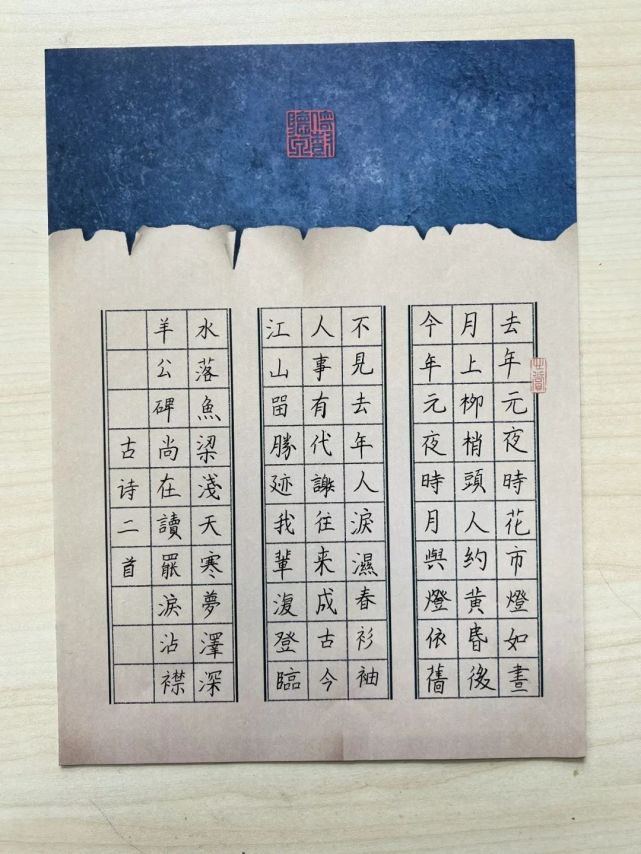 去年元夜時花市燈如晝
月上柳梢頭人約黄昏後
今年元夜時月與燈依舊
不見去年人淚濕春衫袖
人事有代謝往来成古今
江山留勝迹我輩復登臨
水落魚梁淺天寒夢澤深
羊公碑尚在讀罷淚沾襟
古诗二首